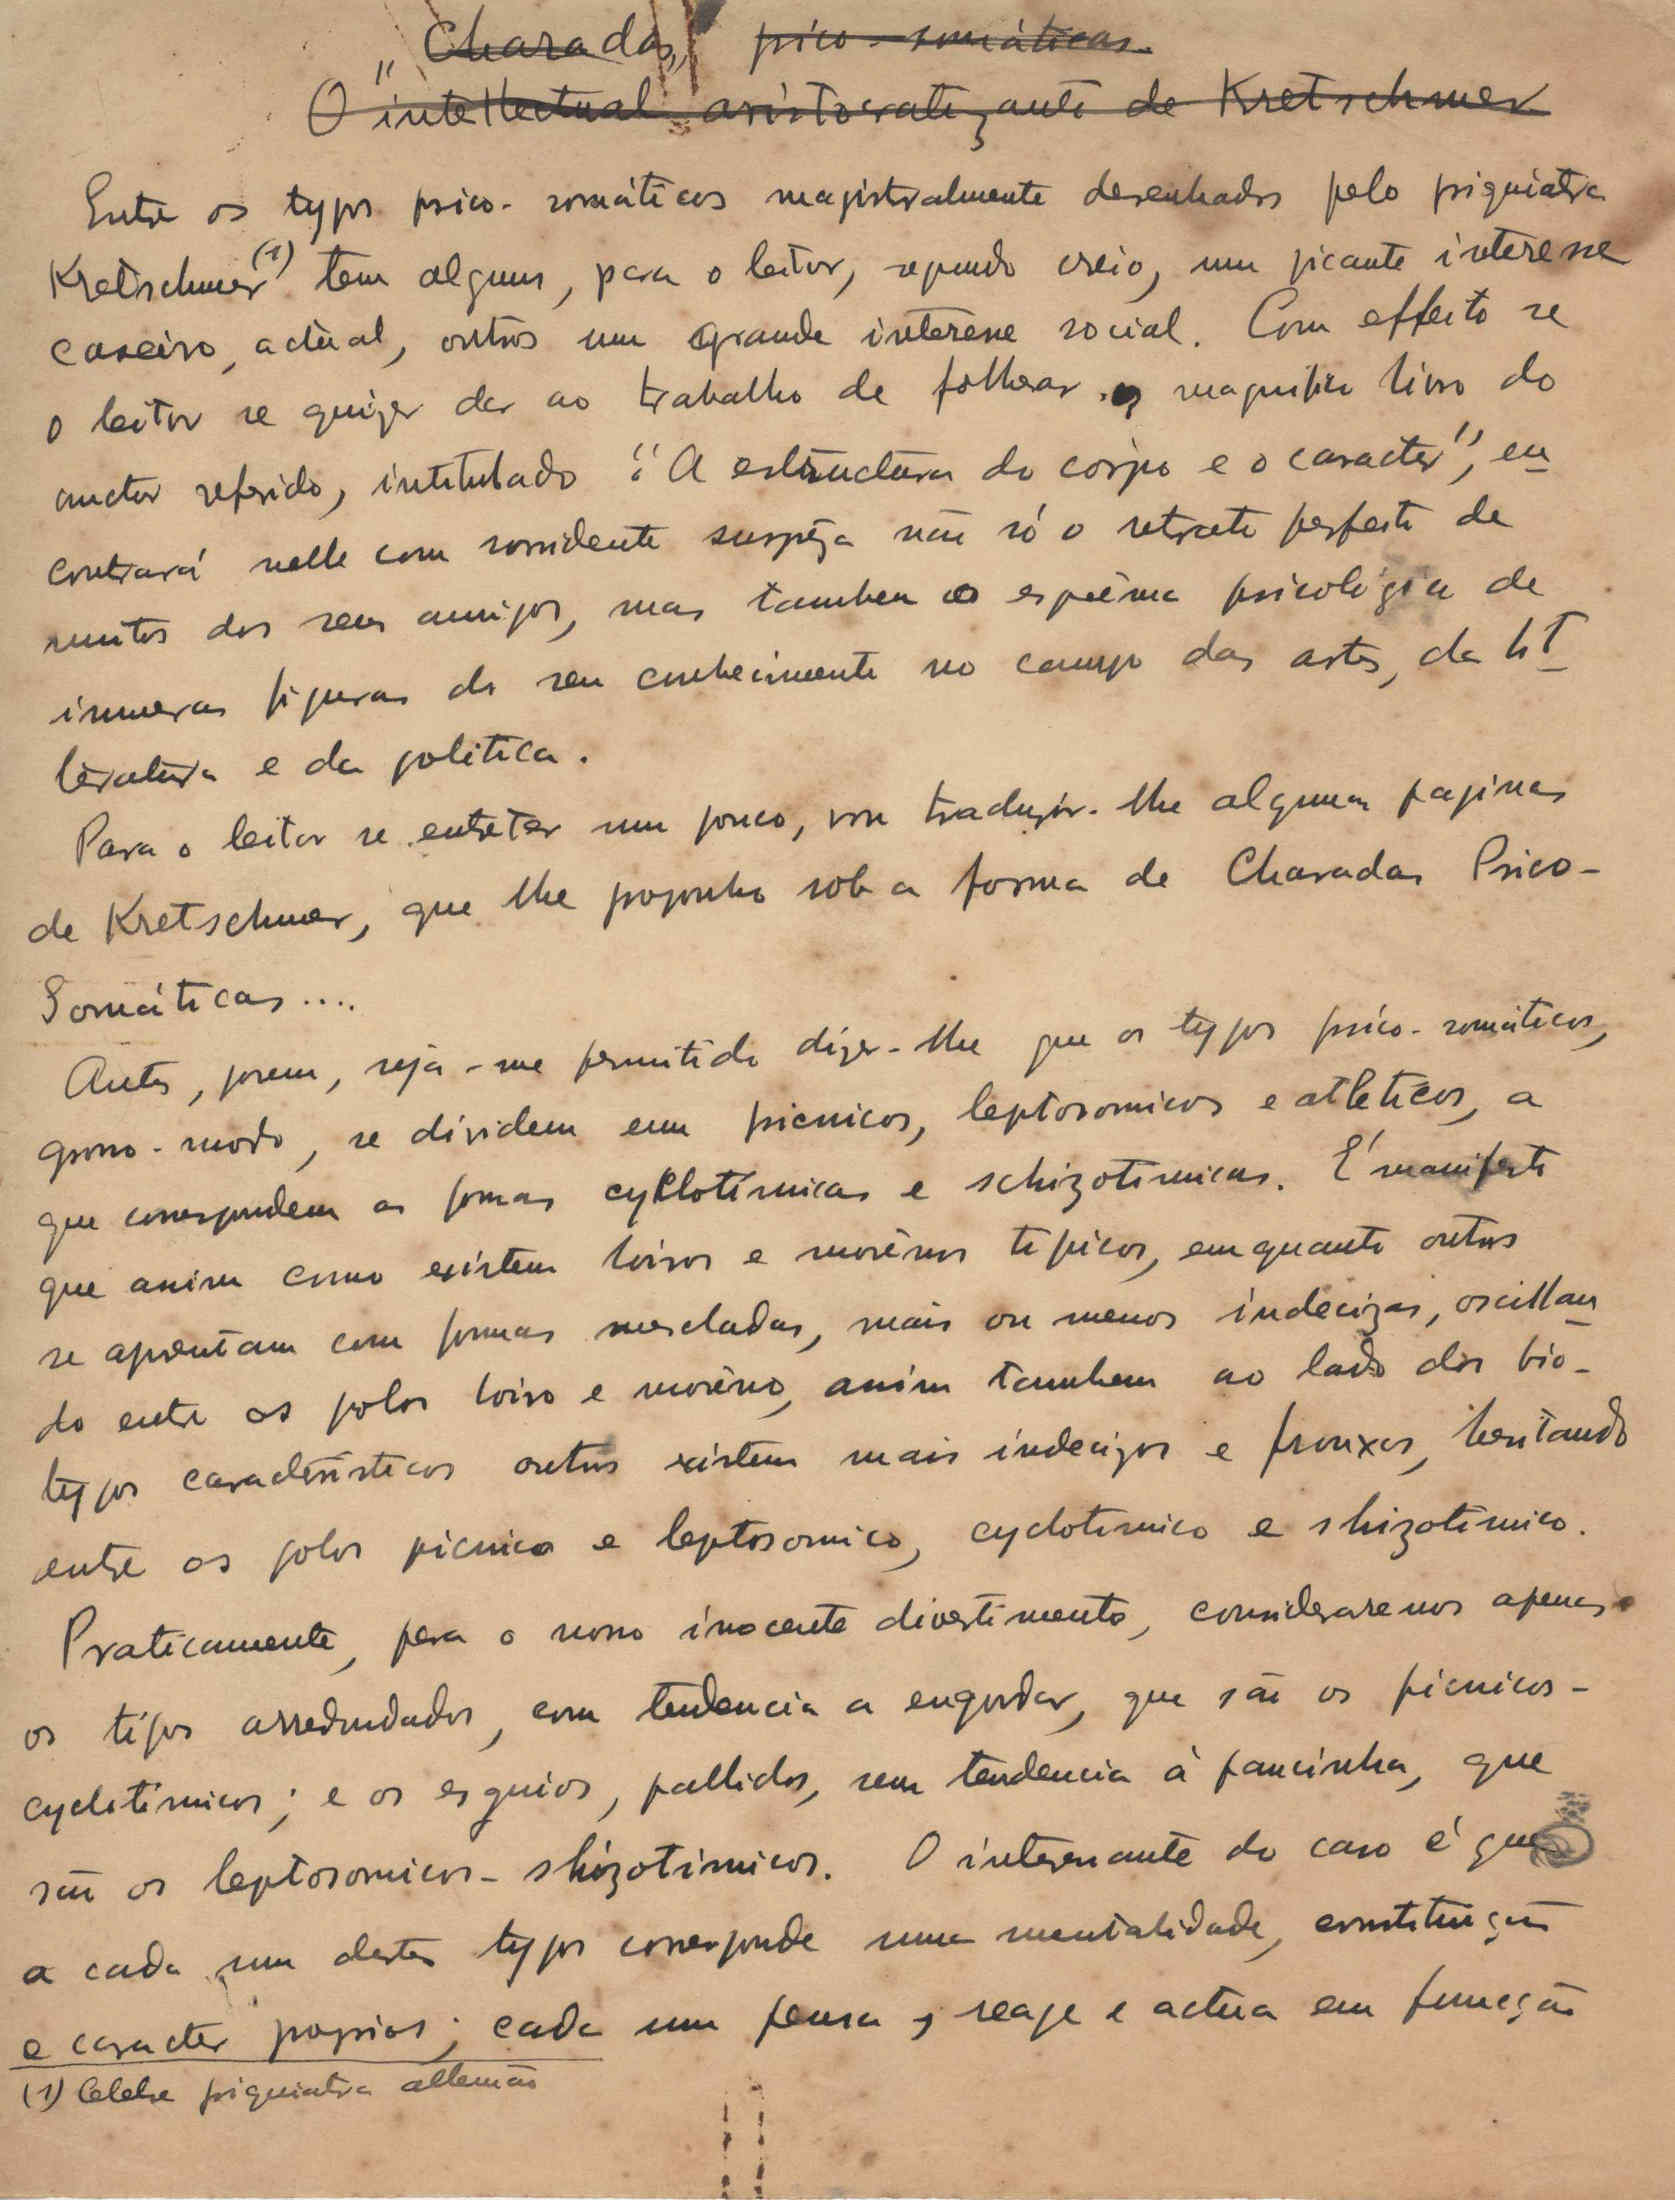 "Charadas" psico-somáticas.
O intellectual aristocratizante de Kretschmer
Entre os typos psico-somáticos magistralmente desenhados pelo psiquiatra
Kretschmer (1) tem alguns, para o leitor, segundo creio, um picante interesse
caseiro, actual, outros um grande interesse social. Com effeito se
o leitor se quizer dar ao trabalho de folhear o magnifico livro do
auctor referido, intitulado "A estructura do corpo e o caracter", en
contrará nelle com sorridente surpreza não só o retrato perfeito de
muitos dos seus amigos, mas tambem o esquêma psicológico de
inumeras figuras do seu conhecimento no campo das artes, da lit
teratura e da politica.
Para o leitor se entreter um pouco, vou traduzir-lhe algumas paginas
de Kretschmer, que lhe proponho sob a forma de Charadas Psico-
Somáticas....
Antes, porem, seja-me permitido dizer-lhe que os typos psico-somáticos,
grosso-modo, se dividem em picnicos, leptosomicos e atleticos, a
que correspondem as formas cyclotímicas e schizotimicas. É manifesto
que assim como existem loiros e morênos tipicos, emquanto outros
se aprentam com formas mescladas, mais ou menos indecizas, oscillan
do entre os polos loiro e morêno, assim tambem ao lado dos bio-
typos característicos outros existem mais indecizos e frouxos, hesitando
entre os polos picnico e leptosomico, cyclotimico e shizotimico.
Praticamente, para o nosso inocente divertimento, consideraremos apenas
os tipos arredondados, com tendencia a engordar, que são os picnicos-
cyclotimicos; e os esguios, pallidos, sem tendencia à pancinha, que
são os leptosomicos-shizotimicos. O interessante do caso é que
a cada um destes typos corresponde uma mentalidade, constituição
e caracter proprios; cada um pensa, reage e actua em funcção
(1) Celebre psiquiatra allemão